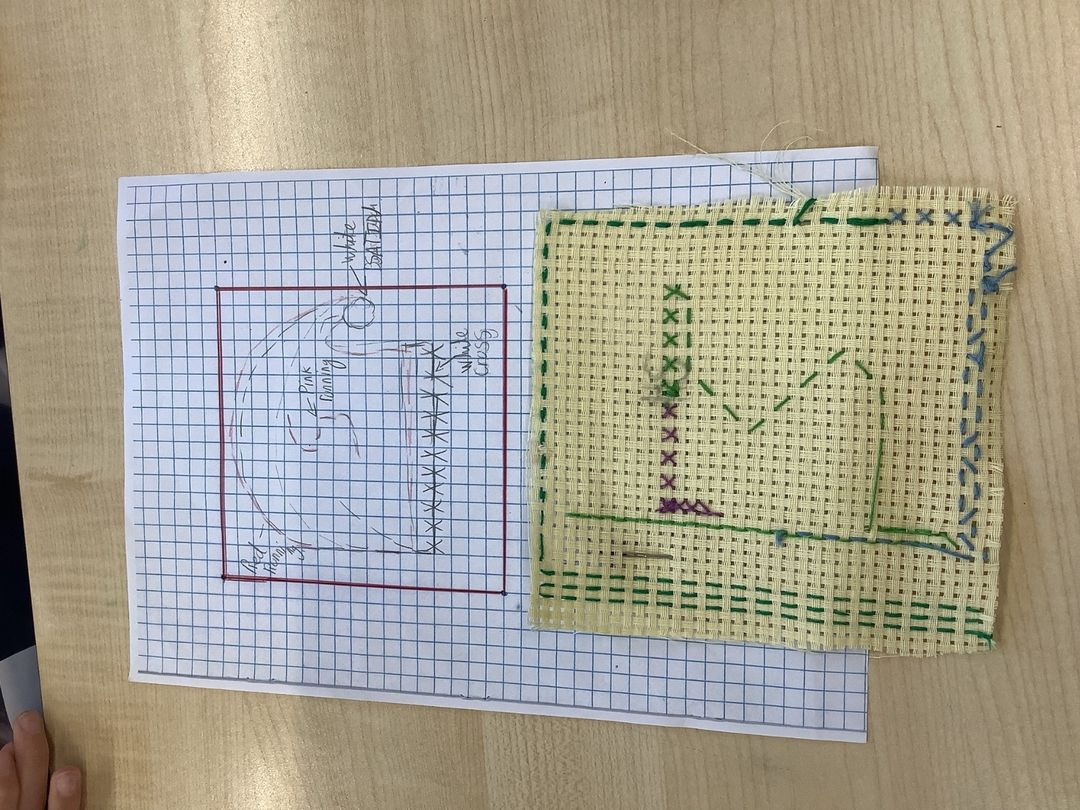 White
SATIN
Pink
Running
White
Cross
Red